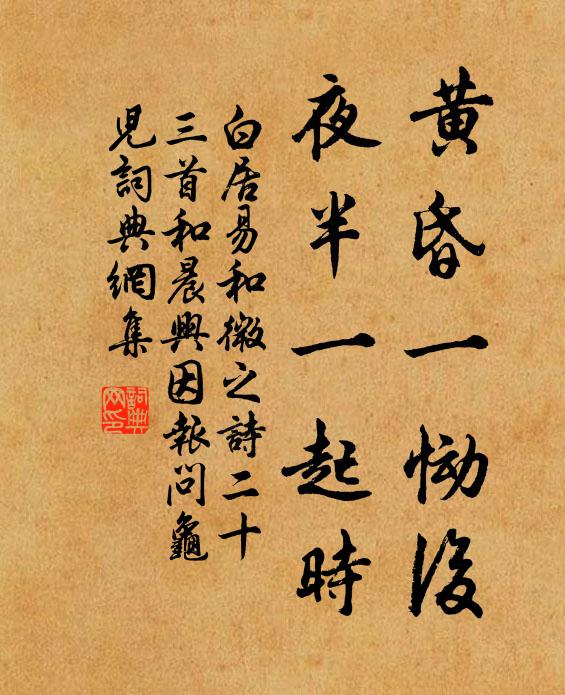 黃昏一慟後
夜半一起時
白居易和微之詩二十
三首和晨興因報問龜
兒詞典網集
詞典
网印